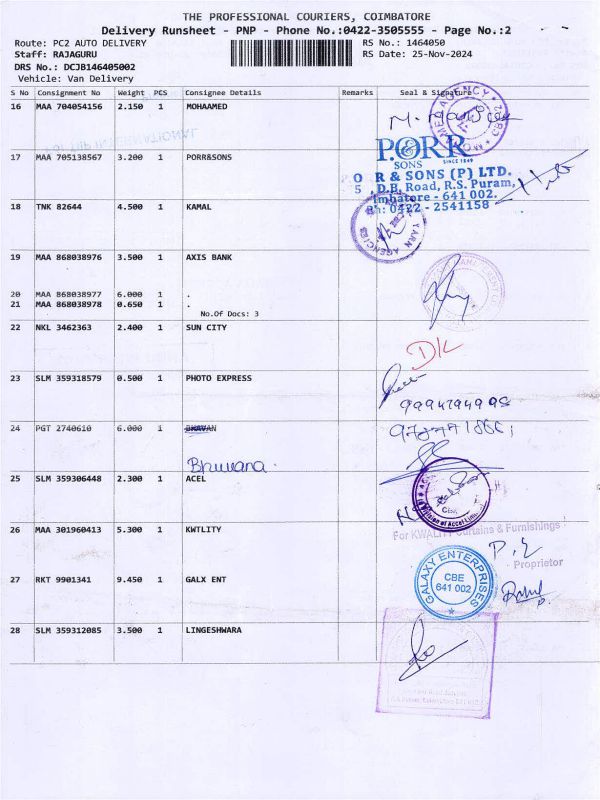 THE PROFESSIONAL COURIERS, COIMBATORE
Delivery Runsheet - PNP - Phone No.:0422-3505555 - Page No.:2
Route: PC2 AUTO DELIVERY RS No.: 1464050
Staff: RAJAGURU RS Date: 25-Nov-2024
DRS No.: DCJB146405002
Vehicle: Van Delivery
S No Consignment No Weight PCS Consignee Details Remarks Seal & Signature
16 MAA 704054156 2.150 1 MOHAAMED
17 MAA 705138567 3.200 1 PORR&SONS
P.ORR
& SONS SINCE 1849
R & SONS (P) LTD.
D.B. Road, R.S. Puram,
mbatore - 641 002.
Ph: 0422 - 2541158
18 TNK 82644 4.500 1 KAMAL
YARN AGENCIES
19 MAA 868038976 3.500 1 AXIS BANK
20 MAA 868038977 6.000 1 .
21 MAA 868038978 0.650 1 .
No.Of Docs: 3
22 NKL 3462363 2.400 1 SUN CITY
23 SLM 359318579 0.500 1 PHOTO EXPRESS
24 PGT 2740610 6.000 1 BHAVAN
Bhuvana.
25 SLM 359306448 2.300 1 ACEL
26 MAA 301960413 5.300 1 KWTLITY
For KWALITY Curtains & Furnishings
Proprietor
27 RKT 9901341 9.450 1 GALX ENT
GALAXY ENTERPRISES
CBE
641 002
28 SLM 359312085 3.500 1 LINGESHWARA